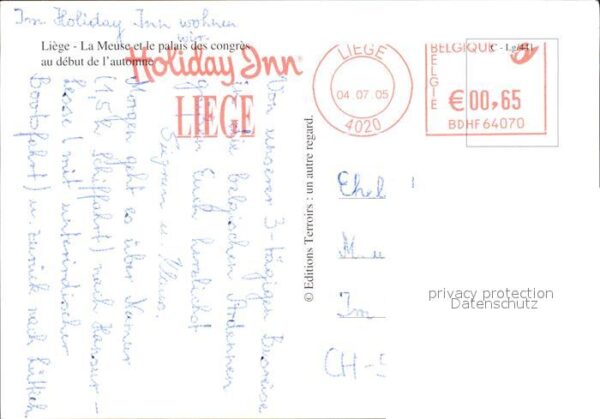 Im Holiday Inn wohnen
wir.
Liège - La Meuse et le palais des congrès
au début de l'automne
Holiday Inn
LIEGE
LIEGE
04 07.05
4020
BELGIQUE
BELGIE
€00,65
BDHF 64070
C - Lg/441
Von unserer 3-tägigen Busreise
in die belgischen Ardennen
grüßen Euch herzlichst
u. Klaus.
Morgen geht es über Namur
(1,5h Schiffahrt) nach Han sur-
Lesse (mit unterirdischer
Bootsfahrt) u. zurück nach Lüttich.
© Editions Terroirs : un autre regard.
Im
CH-
privacy protection
Datenschutz